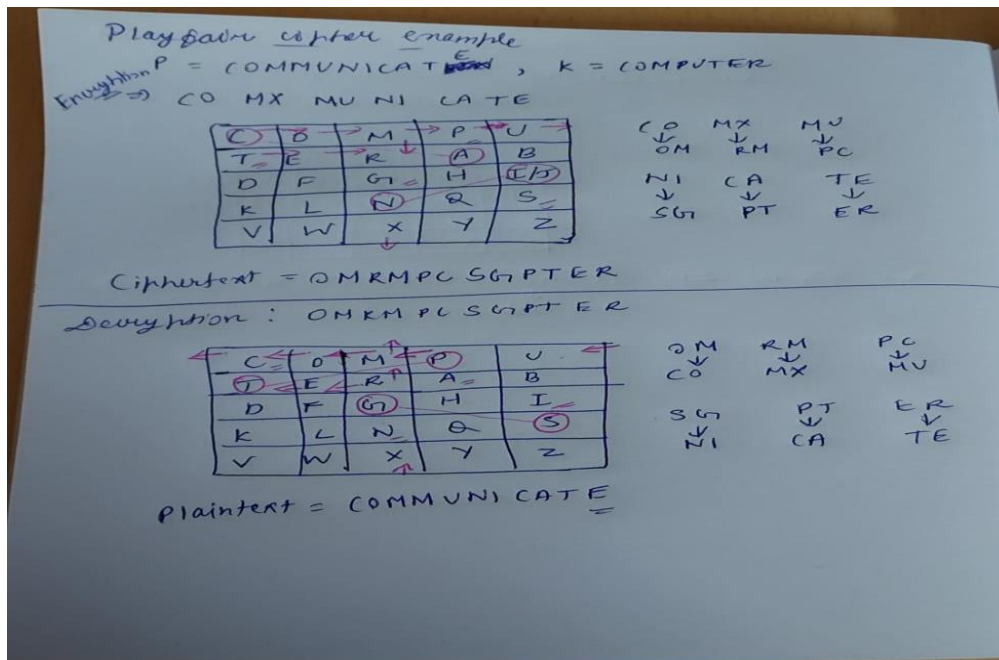 Playfair cipher example
Encryption P = COMMUNICATE, K = COMPUTER
⇒ CO MX MU NI CA TE
C O M P U
T E R A B
D F G H I/J
K L N Q S
V W X Y Z
CO MX MU
OM RM PC
NI CA TE
SG PT ER
Ciphertext = OMRMPCSGPTER
Decryption : OMRMPCSGPTER
C O M P U
T E R A B
D F G H I
K L N Q S
V W X Y Z
OM RM PC
CO MX MU
SG PT ER
NI CA TE
Plaintext = COMMUNICATE